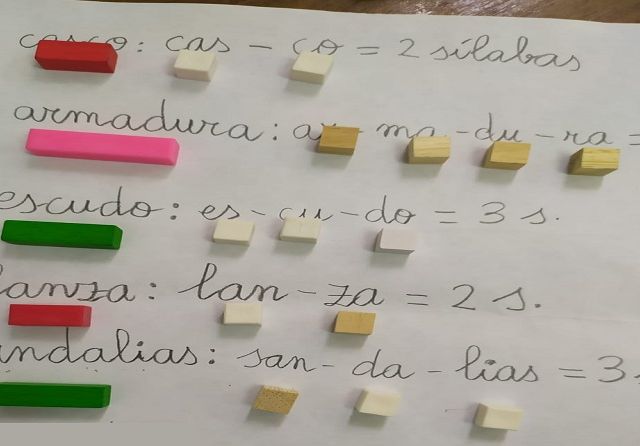 casco: cas - co = 2 sílabas
armadura: ar - ma - du - ra =
escudo: es - cu - do = 3 s.
lanza: lan - za = 2 s.
andalias: san - da - lias = 3